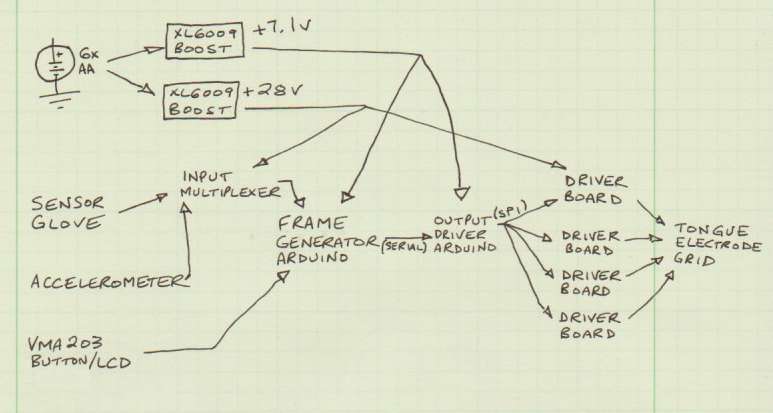 +
6x
AA
XL6009
BOOST
+7.1V
XL6009
BOOST
+28V
INPUT
MULTIPLEXER
SENSOR
GLOVE
ACCELEROMETER
VMA203
BUTTON/LCD
FRAME
GENERATOR
ARDUINO
(SERIAL)
OUTPUT
DRIVER
ARDUINO
(SPI)
DRIVER
BOARD
DRIVER
BOARD
DRIVER
BOARD
DRIVER
BOARD
TONGUE
ELECTRODE
GRID